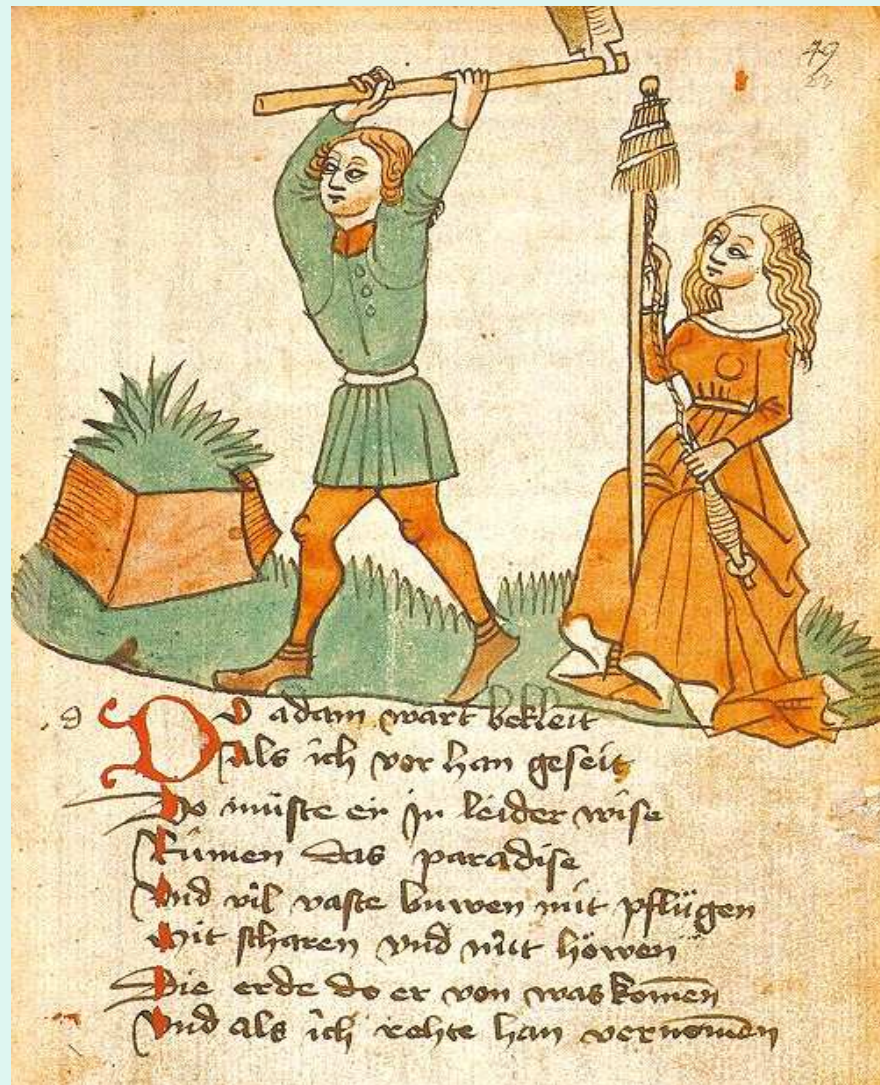 49
Do adam wart bekleit
Als ich vor han geseit
Do müste er in leider wise
Rumen das paradise
Vnd vil vaste buwen mit pflügen
Mit scharen vnd mit höwen
Die erde do er von was komen
Vnd als ich rehte han vernomen